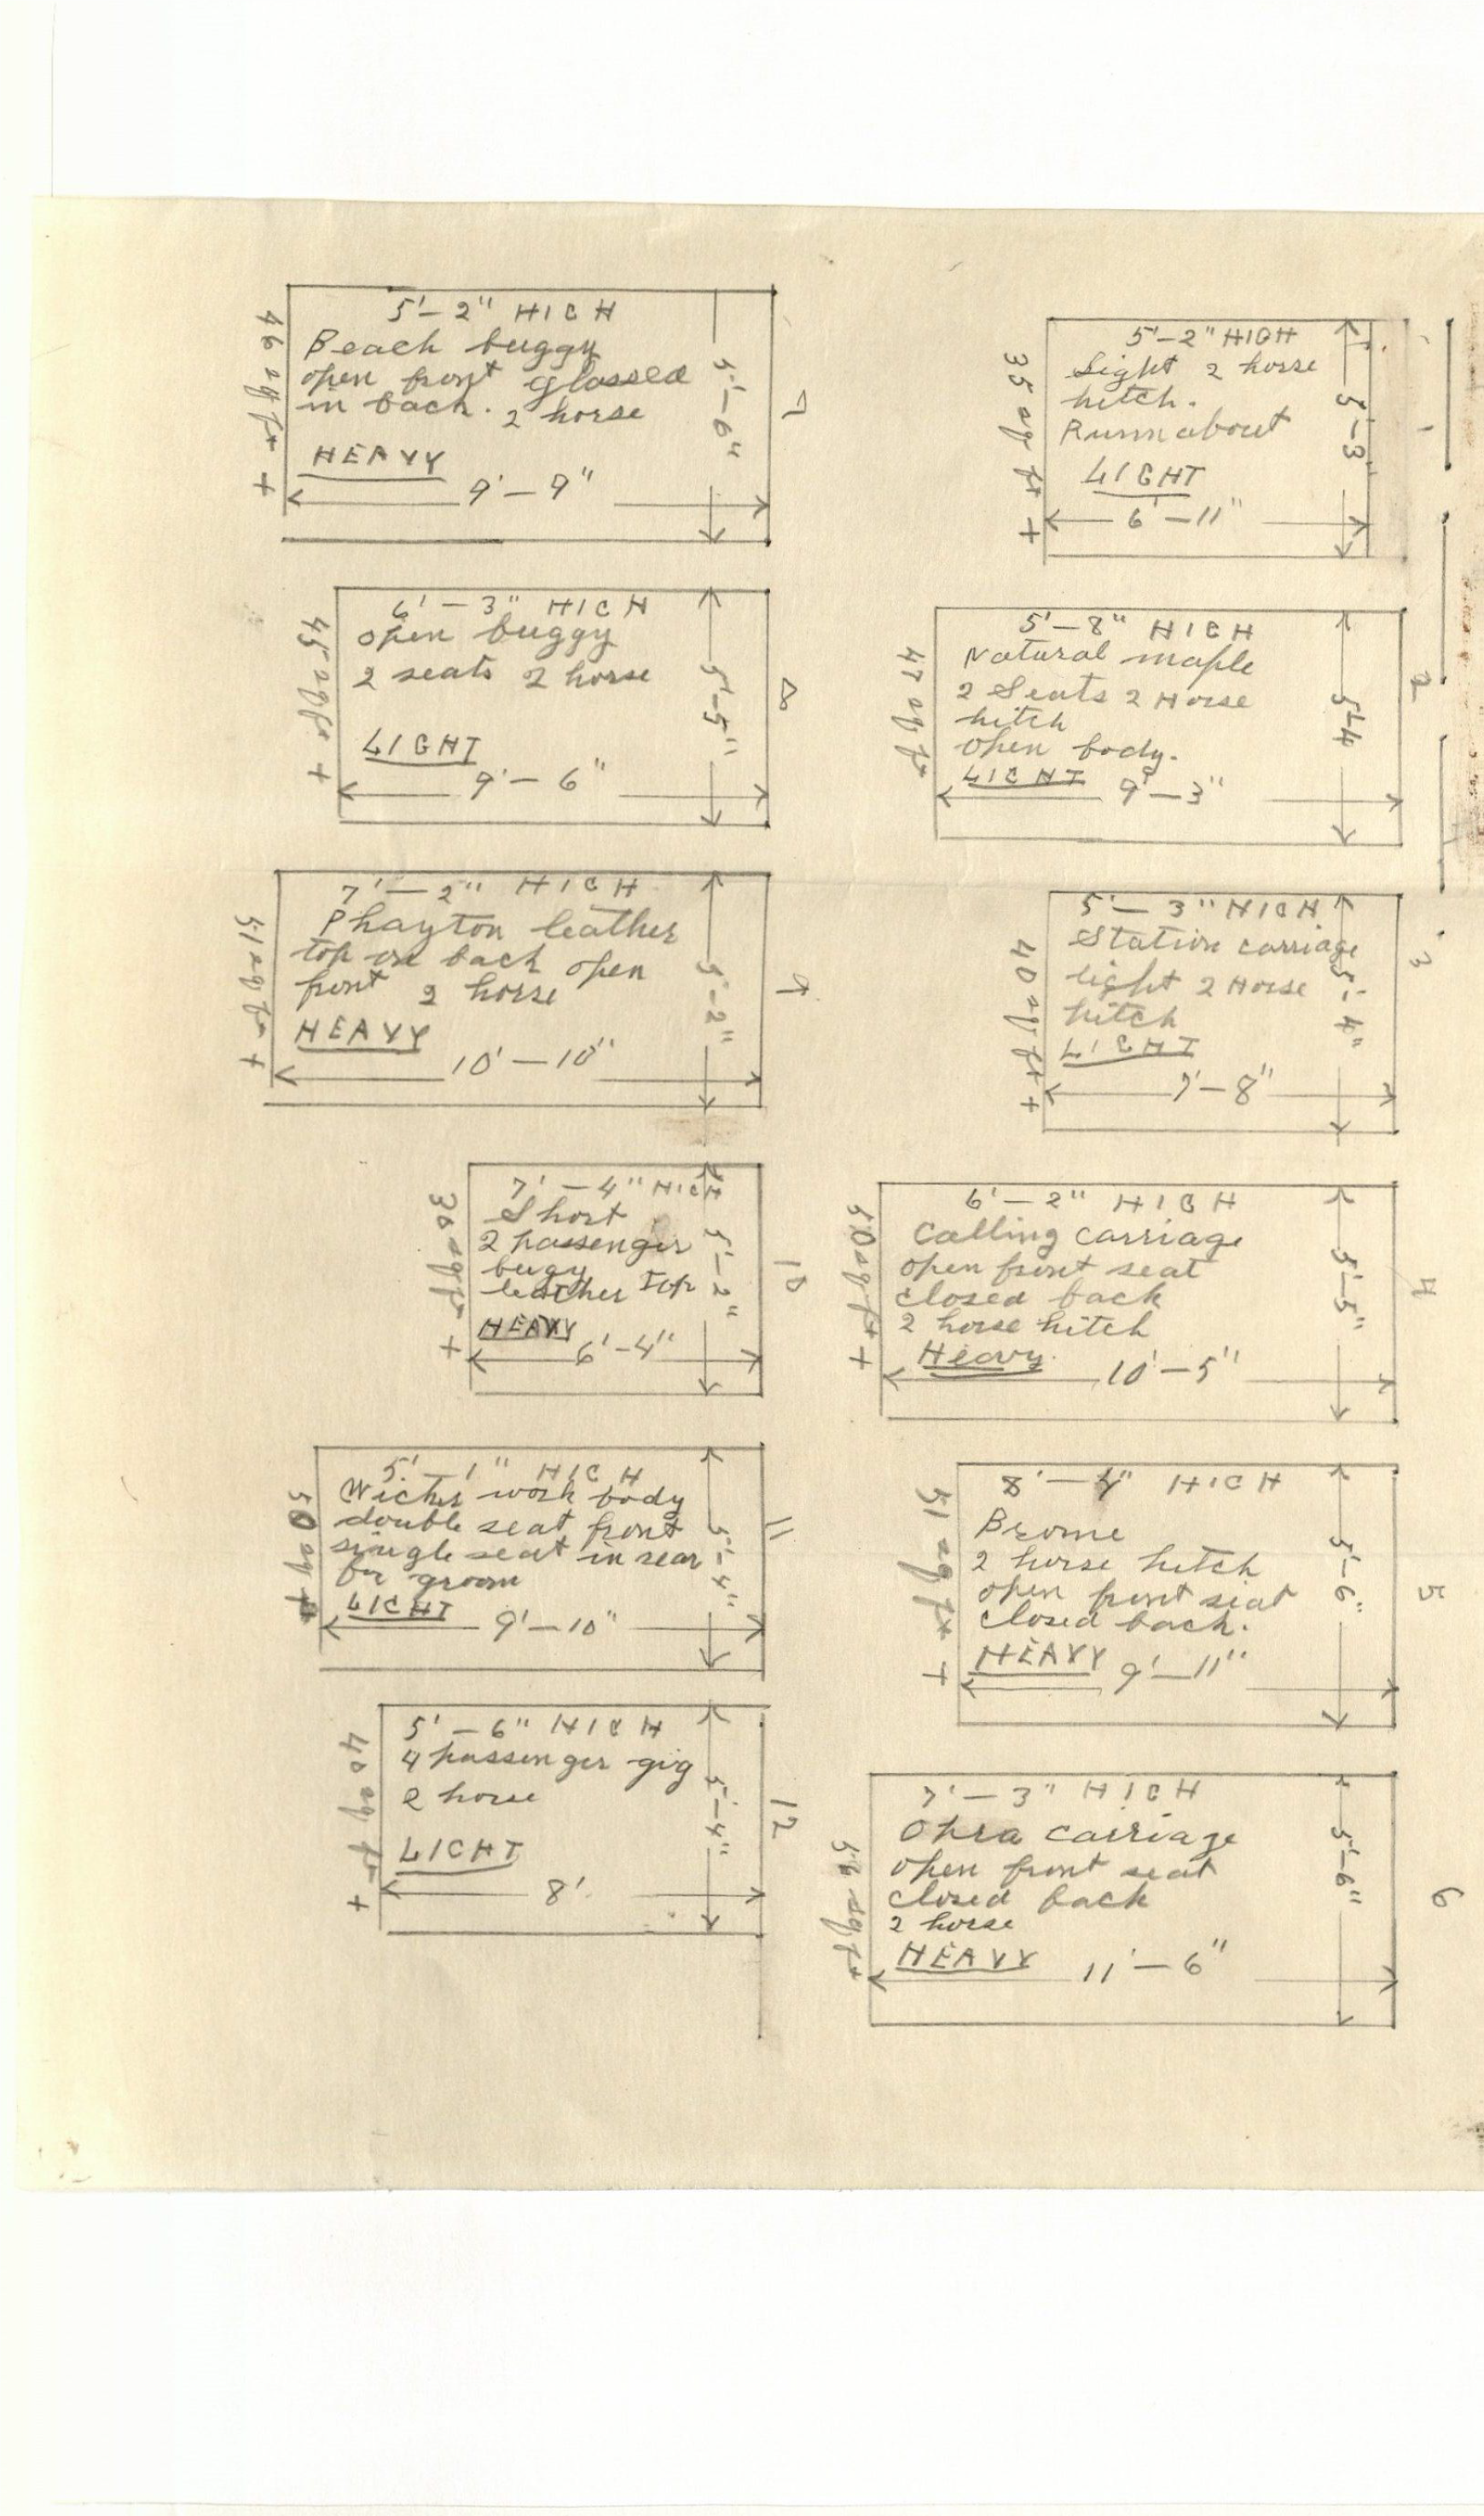 1
5'-2" HIGH
Light 2 horse
hitch.
Runnabout
LIGHT
6'-11"
5'-3"
35 sq ft +
2
5'-8" HIGH
Natural maple
2 Seats 2 Horse
hitch
open body.
LIGHT
9'-3"
5'-4
47 sq ft
3
5'-3" HIGH
Station carriage
light 2 Horse
hitch
LIGHT
7'-8"
5'-4"
40 sq ft +
4
6'-2" HIGH
Calling carriage
open front seat
closed back
2 horse hitch
Heavy.
10'-5"
5'-5"
50 sq ft +
5
8'-4" HIGH
Brome
2 horse hitch
open front seat
closed back.
HEAVY
9'-11"
5'-6"
51 sq ft +
6
7'-3" HIGH
Opra carriage
open front seat
closed back
2 horse
HEAVY
11'-6"
5'-6"
sq ft
7
5'-2" HIGH
Beach buggy
open front glassed
in back. 2 horse
HEAVY
9'-9"
5'-6"
46 sq ft +
8
6'-3" HIGH
open buggy
2 seats 2 horse
LIGHT
9'-6"
5'-5"
45 sq ft +
9
7'-2" HIGH
Phayton leather
top on back open
front 2 horse
HEAVY
10'-10"
5'-2"
51 sq ft +
10
7'-4" HIGH
Short
2 passenger
bugy
leather top
HEAVY
6'-4"
5'-2"
30 sq ft +
11
5'-1" HIGH
Wicker work body
double seat front
single seat in rear
for groom
LIGHT
9'-10"
5'-4"
50 sq ft
12
5'-6" HIGH
4 passenger gig
2 horse
LIGHT
8'
5'-4"
40 sq ft +